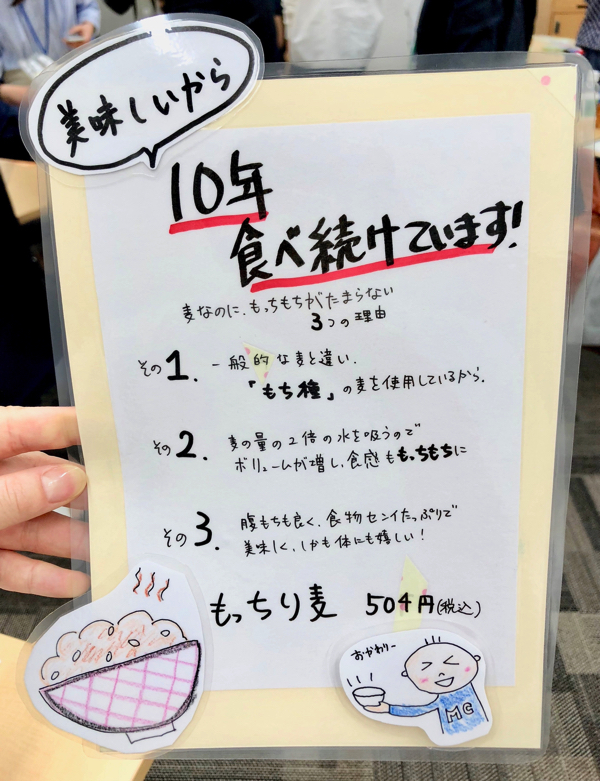 美味しいから
10年
食べ続けています!
麦なのに、もっちもちがたまらない
3つの理由
その1. 一般的な麦と違い、
「もち種」の麦を使用しているから。
その2. 麦の量の2倍の水を吸うので
ボリュームが増し、食感ももっちもちに
その3. 腹もちも良く、食物センイたっぷりで
美味しく、しかも体にも嬉しい!
もっちり麦 504円(税込)
おかわりー
MC